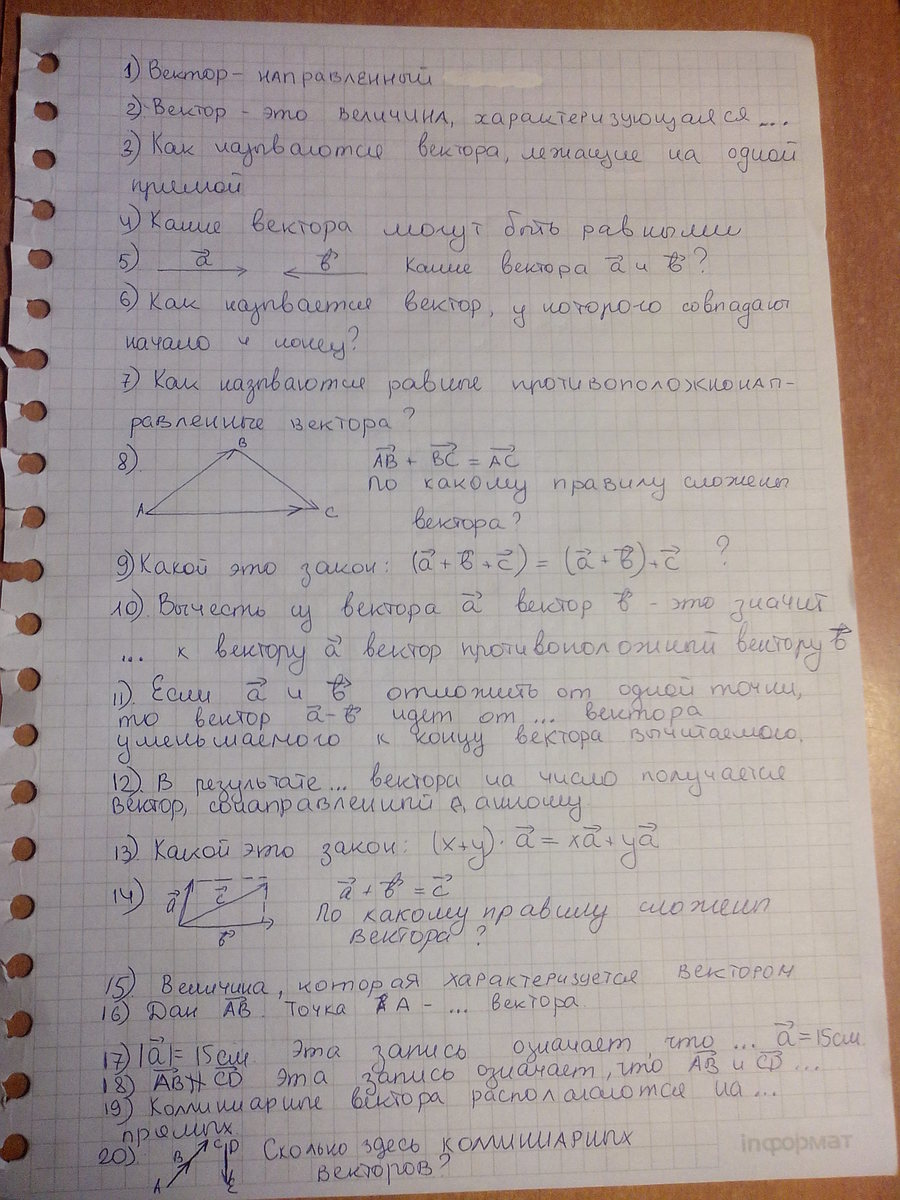 1) Вектор - направленный
2) Вектор - это величина, характеризующаяся ...
3) Как называются вектора, лежащие на одной
прямой
4) Какие вектора могут быть равными
5) a⃗ b⃗ Какие вектора a⃗ и b⃗?
6) Как называется вектор, у которого совпадают
начало и конец?
7) Как называются равные противоположнонап-
равленные вектора?
8) A B C AB⃗ + BC⃗ = AC⃗
По какому правилу сложены
вектора?
9) Какой это закон: (a⃗ + b⃗ + c⃗) = (a⃗ + b⃗) + c⃗ ?
10) Вычесть из вектора a⃗ вектор b⃗ - это значит
... к вектору a⃗ вектор противоположный вектору b⃗
11) Если a⃗ и b⃗ отложить от одной точки,
то вектор a⃗ - b⃗ идет от ... вектора
уменьшаемого к концу вектора вычитаемого.
12) В результате ... вектора на число получается
вектор, сонаправленный данному
13) Какой это закон: (x+y)·a⃗ = xa⃗ + ya⃗
14) a⃗ c⃗ b⃗ a⃗ + b⃗ = c⃗
По какому правилу сложены
вектора?
15) Величина, которая характеризуется вектором
16) Дан AB⃗. Точка A - ... вектора.
17) |a⃗| = 15см. Эта запись означает, что ... a⃗ = 15см.
18) AB⃗ ∦ CD⃗ Эта запись означает, что AB⃗ и CD⃗ ...
19) Коллиниарные вектора располагаются на ...
прямых
20) A B C D E Сколько здесь коллиниарных
векторов?
informат